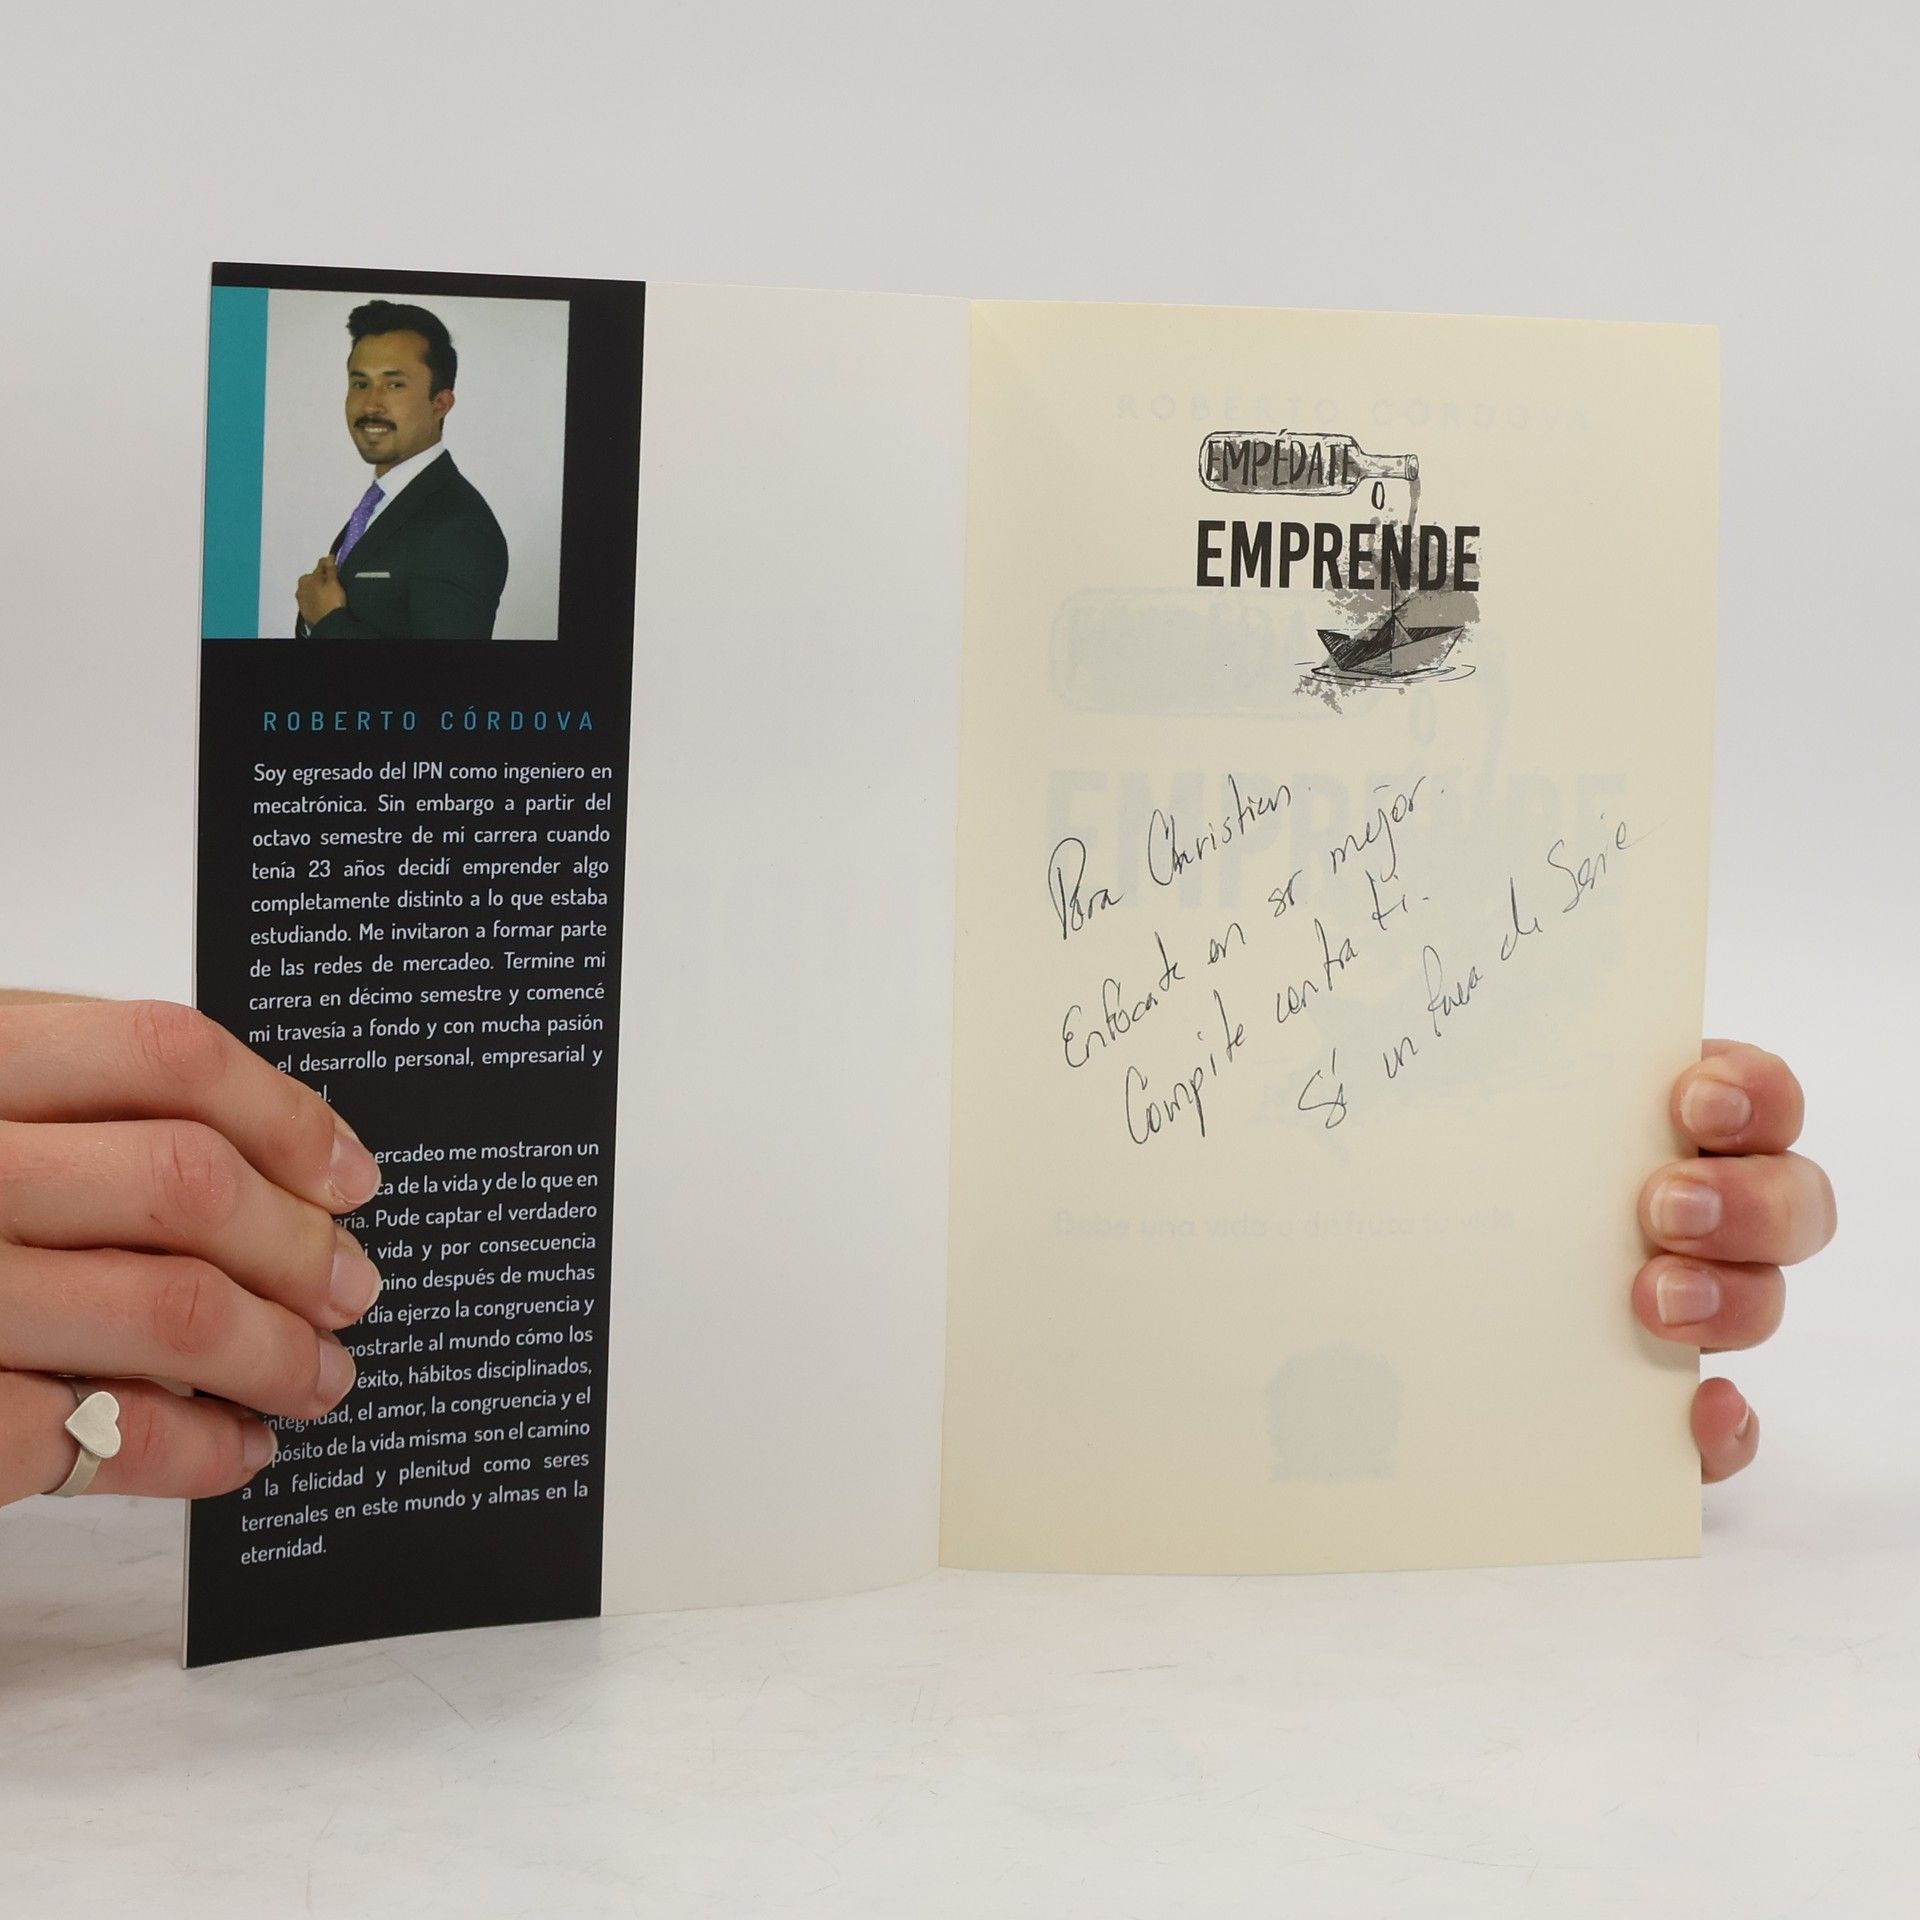 ROBERTO CÓRDOVA
Soy egresado del IPN como ingeniero en
mecatrónica. Sin embargo a partir del
octavo semestre de mi carrera cuando
tenía 23 años decidí emprender algo
completamente distinto a lo que estaba
estudiando. Me invitaron a formar parte
de las redes de mercadeo. Termine mi
carrera en décimo semestre y comencé
mi travesía a fondo y con mucha pasión
el desarrollo personal, empresarial y
ercadeo me mostraron un
de la vida y de lo que en
ría. Pude captar el verdadero
vida y por consecuencia
mino después de muchas
día ejerzo la congruencia y
mostrarle al mundo cómo los
éxito, hábitos disciplinados,
integridad, el amor, la congruencia y el
pósito de la vida misma son el camino
a la felicidad y plenitud como seres
terrenales en este mundo y almas en la
eternidad.
ROBERTO CÓRDOVA
EMPÉDATE
O
EMPRENDE
Para Christian.
Enfócate en ser mejor.
Compite contra ti.
Sé un fuera de Serie
Bebe una vida o disfruta tu vida